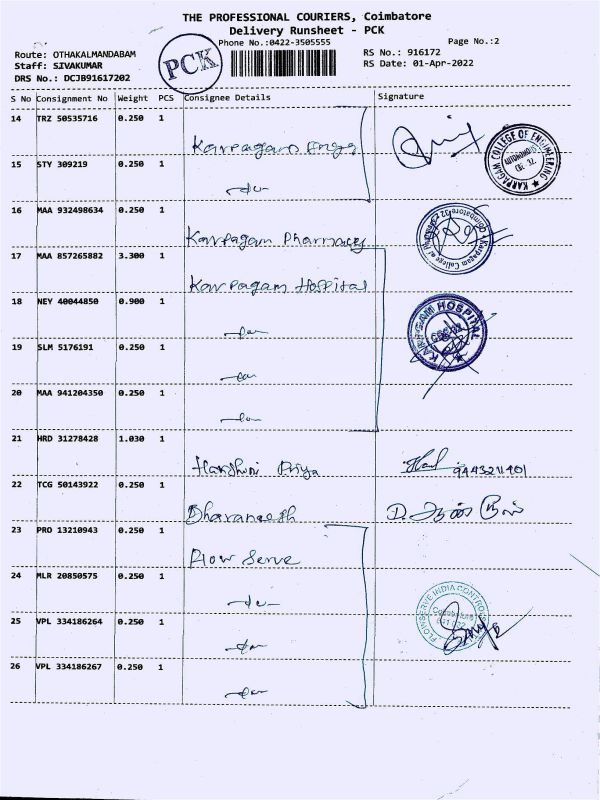 THE PROFESSIONAL COURIERS, Coimbatore
Delivery Runsheet - PCK
Phone No.:0422-3505555
Page No.:2
Route: OTHAKALMANDABAM
Staff: SIVAKUMAR
DRS No.: DCJB91617202
PCK
RS No.: 916172
RS Date: 01-Apr-2022
S No Consignment No Weight PCS Consignee Details Signature
14 TRZ 50535716 0.250 1 Karpagam Engg
KARPAGAM COLLEGE OF ENGINEERING AUTONOMOUS CBE 32
15 STY 309219 0.250 1 -do-
16 MAA 932498634 0.250 1 Karpagam Pharmacy
Karpagam College of Coimbatore
17 MAA 857265882 3.300 1 Karpagam Hospital
18 NEY 40044850 0.900 1 -do-
KARPAGAM HOSPITAL
19 SLM 5176191 0.250 1 -do-
20 MAA 941204350 0.250 1 -do-
21 HRD 31278428 1.030 1 Harshini Priya 9443211401
22 TCG 50143922 0.250 1 Dharaneesh D.
23 PRO 13210943 0.250 1 Flow Serve
24 MLR 20850575 0.250 1 -do-
FLOWSERVE INDIA CONTROLS
25 VPL 334186264 0.250 1 -do-
26 VPL 334186267 0.250 1 -do-